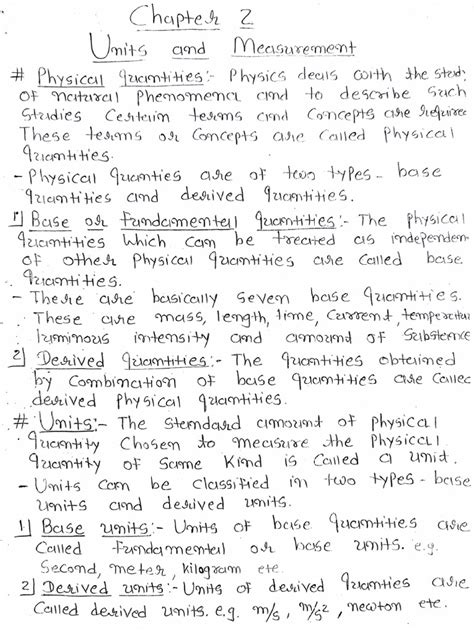 Chapter 2
Units and Measurement
# Physical quantities:- Physics deals with the stud
of natural Phenomena and to describe such
Studies Certain terms and Concepts are require
These terms or Concepts are Called Physical
quantities.
- Physical quanties are of two types - base
quantities and derived quantities.
1) Base or fundamental quantities:- The physical
quantities which can be treated as independen
of other Physical quantities are Called base
quantities.
- There are basically seven base quantities.
These are mass, length, time, Current, temperatu
luminous intensity and amount of Substence
2) Derived quantities:- The quantities obtained
by Combination of base quantities are Called
derived physical quantities.
# Units:- The Standard amount of Physical
quantity Chosen to measure the Physical
quantity of Same Kind is Called a unit.
- Units Can be Classified in two types - base
units and derived units.
1) Base units:- Units of base quantities are
Called Fundamental or base units. e.g.
Second, meter, kilogram etc.
2) Derived units:- Units of derived quanties are
Called derived units. e.g. m/s, m/s², newton etc.